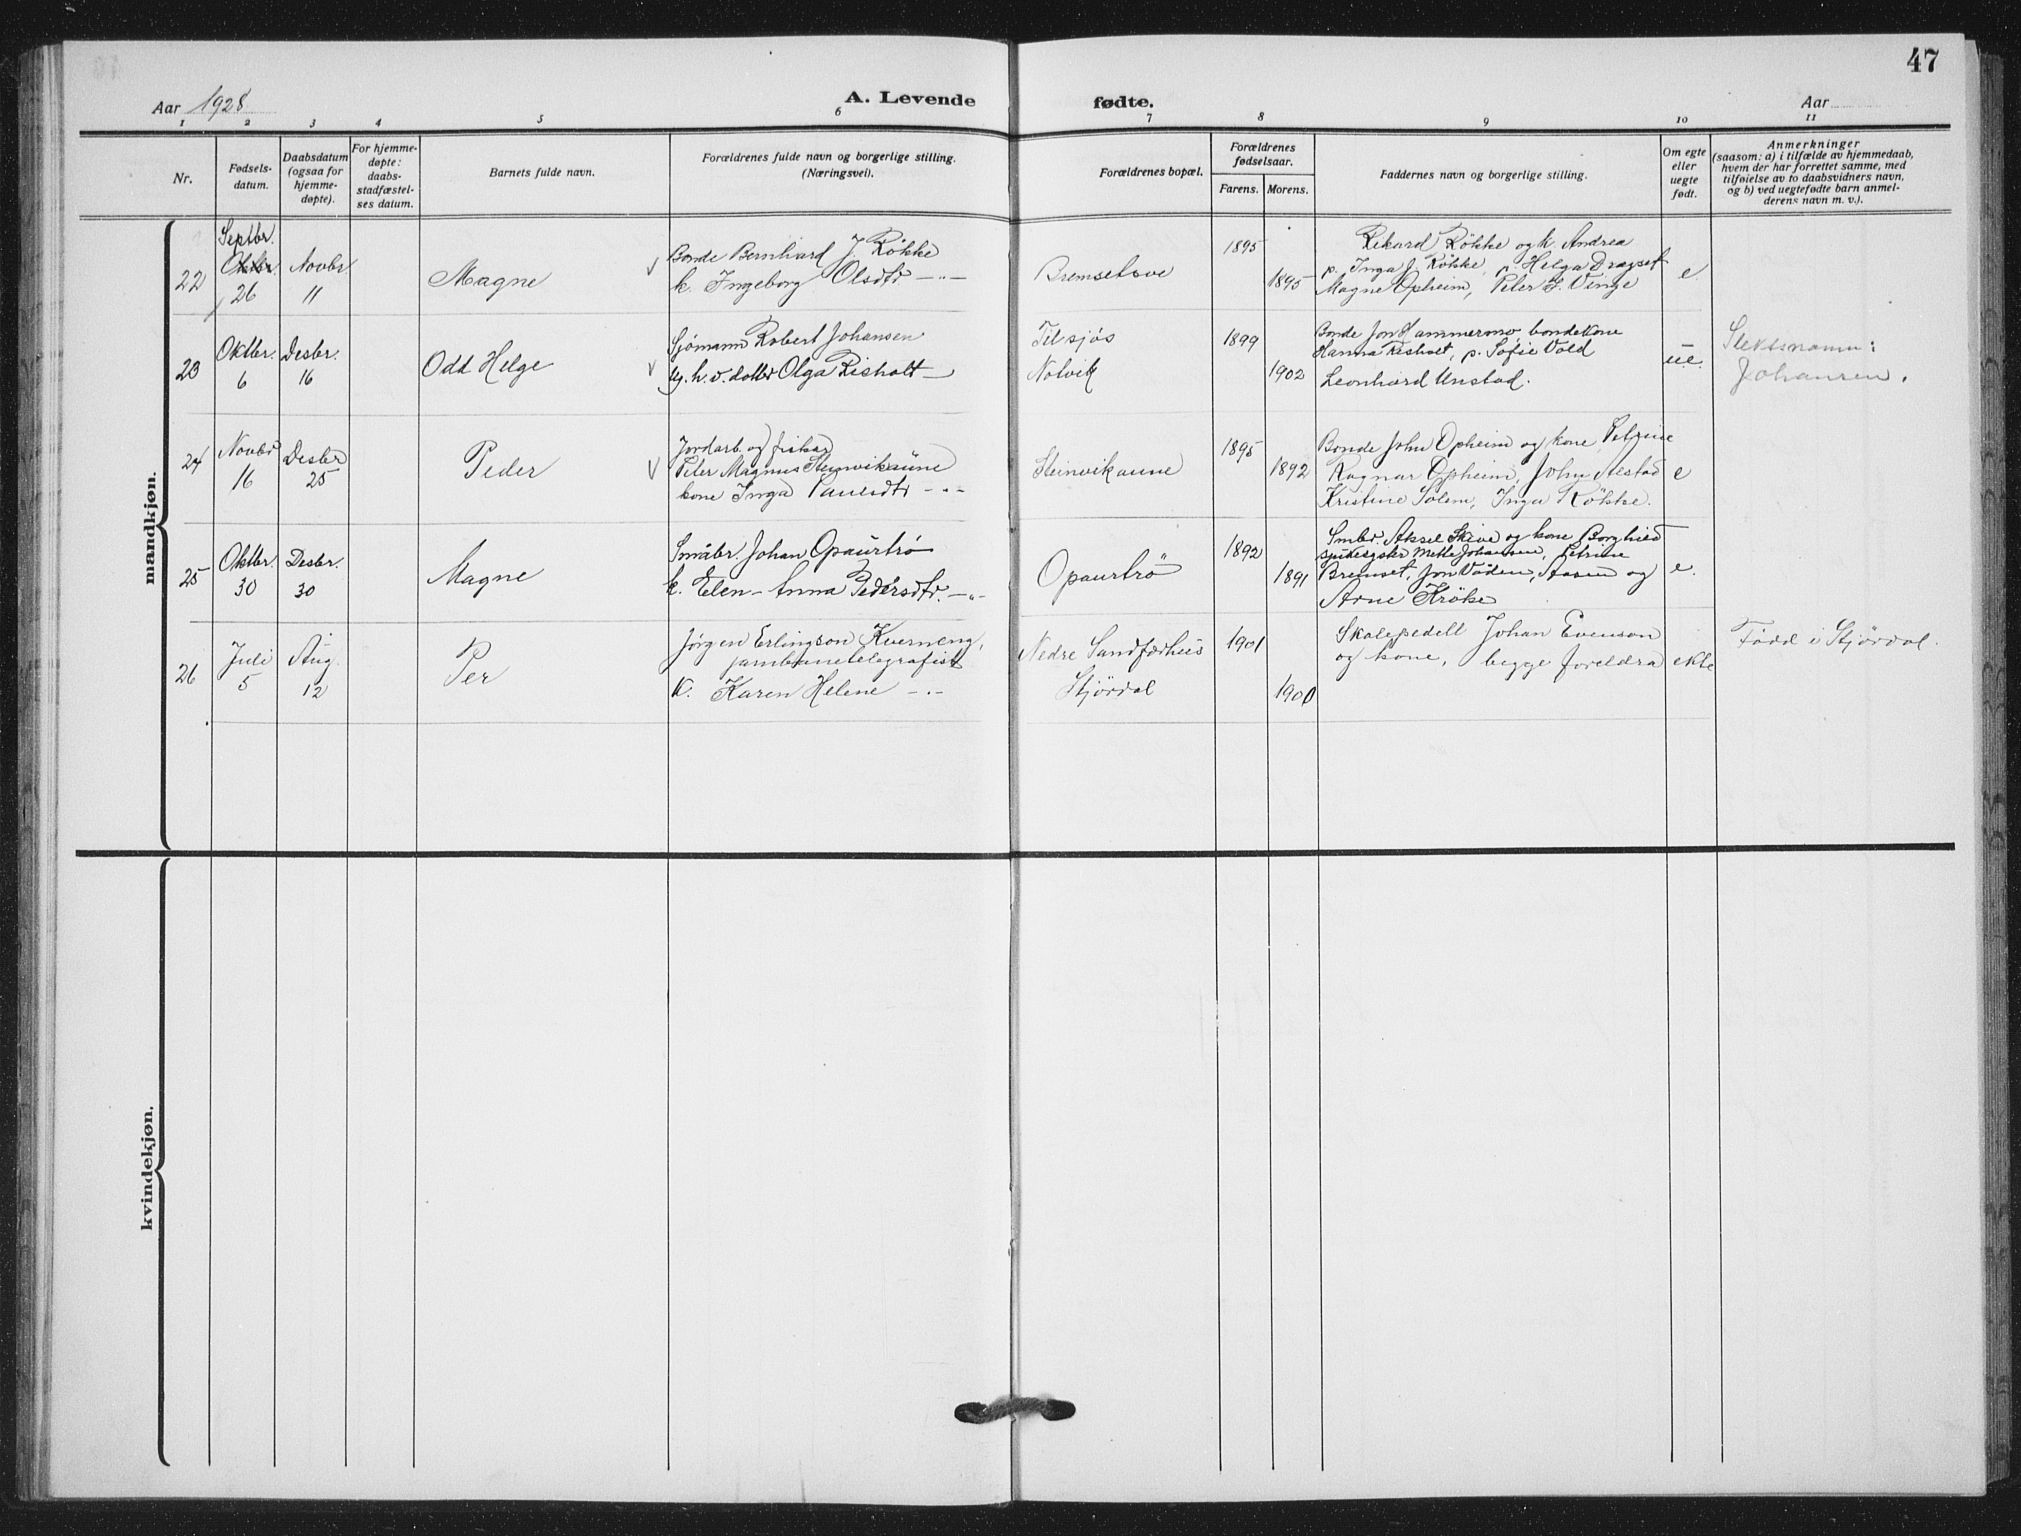 47
Aar 1928
A. Levende fødte.
Aar
1 2 3 4 5 6 7 8 9 10 11
Nr.
Fødsels-
datum.
Daabsdatum
(ogsaa for
hjemme-
døpte).
For hjemme-
døpte:
daabs-
stadfæstel-
ses datum.
Barnets fulde navn.
Forældrenes fulde navn og borgerlige stilling.
(Næringsvei).
Forældrenes bopæl.
Forældrenes
fødselsaar.
Farens. Morens.
Faddernes navn og borgerlige stilling.
Om egte
eller
uegte
født.
Anmerkninger
(saasom: a) i tilfælde av hjemmedaab,
hvem der har forrettet samme, med
tilføielse av to daabsvidners navn,
og b) ved uegtefødte barn anmel-
derens navn m. v.).
mandkjøn.
22
Septbr.
Oktbr
26
Novbr
11
Magne
Bonde Bernhard J. Røkke
k. Ingeborg Olsdtr -"-
Bremsetsve
1895
1895
Rikard Røkke og k. Andrea
p. Inga J. Røkke, p. Helga Dragset
Magne Opheim, Peter S. Vinge
e
23
Oktbr.
6
Desbr.
16
Odd Helge
Sjømann Robert Johansen
ug. h. v. datter Olga Risholt
Tilsjøs
Nolvik
1899
1902
Bonde Jon Hammermo bondekone
Hanna Risholt, p. Sofie Vold
Leonhard Unstad.
ue.
Slektsnamn:
Johansen.
24
Novbr
16
Desbr
25
Peder
Jordarb. og fisker
Peter Magnus Steinviksune
kone Inga Paulsdtr -"-
Steinvikaune
1895
1892
Bonde John Opheim og kone Petrine
Ragnar Opheim, John Aestad
Kristine Solem, Inga Røkke.
e
25
Oktbr.
30
Desbr.
30
Magne
Småbr. Johan Opaurtrø
k. Elen-Anna Pedersdtr. -"-
Opaurtrø
1892
1891
Smbr. Aksel Skive og kone Borghild
Mette Johansen, Petrine
Bremset, Jon Vaden, og
Arne Krøke
e.
26
Juli
5
Aug.
12
Per
Jørgen Erlingson Kverneng,
jarnbanetelegrafist
K. Karen Helene -"-
Nedre Sandfærhus
Stjørdal
1901
1900
Skolepedell Johan Evenson
og kone, begge foreldra
ekte
Fødd i Stjørdal.
kvindekjøn.